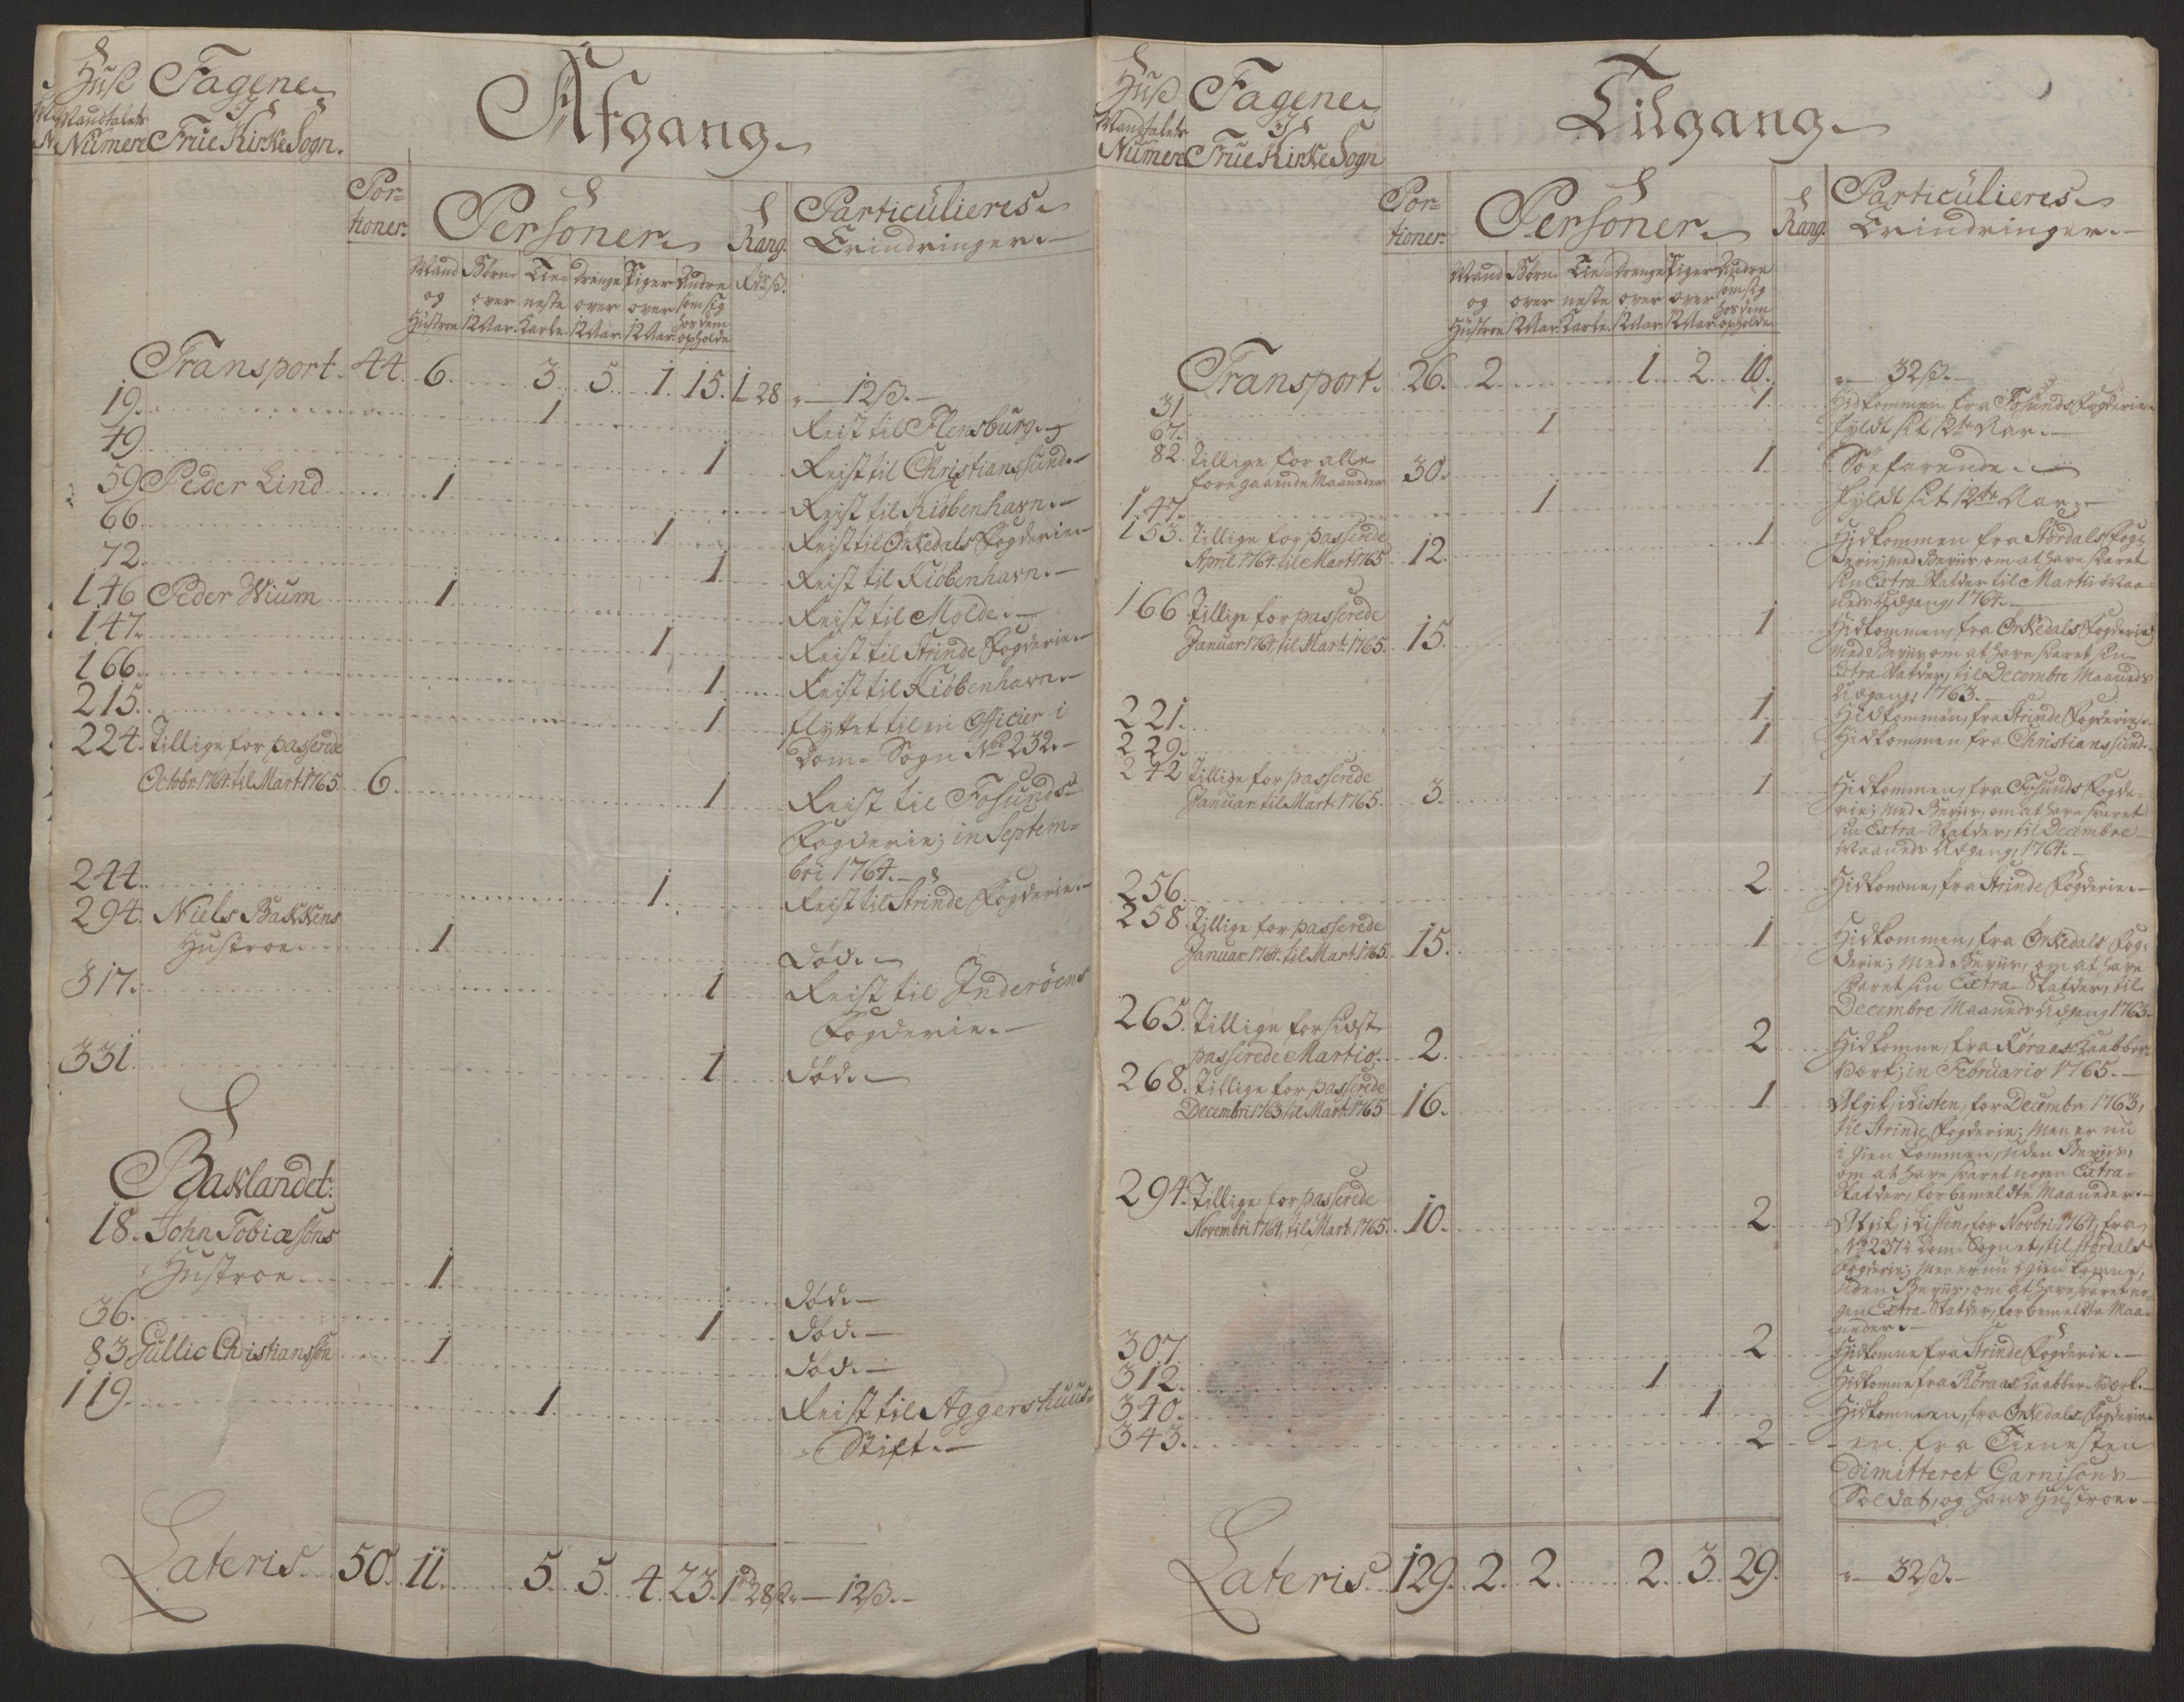 Huß Fagene
Mandtalets J
Numere Frue Kirke Sogn.
Afgang
Por=
tioner.
Personer
Rang.
Particulieres
Erindringer.
Mand og Hustroe
Børn over 12 Aar.
Tieneste Karle.
Drenge over 12 Aar.
Piger over 12 Aar.
Andre som sig hos dem opholde
Rdr ß.
Transport. 44. 6. 3. 5. 1. 15. 1 28 " 12ß.
19. 1 Reist til Flensburg.
49. 1 Reist til Christianssund.
59 Peder Lind 1 Reist til Kiøbenhavn.
66. 1 Reist til Orkedals Fogderie
72. 1 Reist til Kiøbenhavn.
146 Peder Wium 1 Reist til Molde.
147. 1 Reist til Strinde Fogderie
166. 1 Reist til Kiøbenhavn.
215. 1 flyttet til en Officier i
Dom= Sogn No 232.
224. Tillige for passerede
Octobr. 1764. til Mart. 1765. 6. 1 Reist til Fosunds
Fogderie; in Septem=
bri 1764.
244. 1. Reist til Strinde Fogderie.
294. Niels Bakkens
Hustroe. 1 død.
317. 1 Reist til Inderöens
Fogderie.
331. 1 død.
Baklandet:
18. John Tobiæsøns
Hustroe. 1 død.
36. 1 død.
83 Gullic Christiansøn 1 død.
119. 1. Reist til Aggershuus=
Stift.
Lateris. 50. 11. 5. 5. 4. 23. 1 rd 28ß " 12ß.
Huß Fagene
Mandtalets J
Numere Frue Kirke Sogn
Tilgang
Por=
tioner.
Personer.
Rang.
Particulieres
Erindringer.
Mand og Hustroe
Børn over 12 Aar.
Tieneste Karle.
Drenge over 12 Aar.
Piger over 12 Aar.
Andre som sig hos dem opholde
Transport. 26. 2. 1 2. 10. " 32ß.
31 1. Hidkommen fra Fosunds Fogderie
67. 1 fyldt sit 12te Aar.
82. Tillige for alle
foregaaende Maaneder 30. 1. Söefarende.
147. 1 fyldt sit 12te Aar.
153. Tillige for passerede
April 1764. til Mart. 1765 12. 1 Hidkommen fra Stördals Fog=
derie; med Beviis, om at have svaret
sin Extra Skatder til Martii Maa=
neds Udgang, 1764.
166 Tillige for passerede
Januar. 1764, til Mart. 1765. 15. 1 Hidkommen, fra Orkedals Fogderie,
med Beviis, om at have svaret sin
Extra Skatder, til Decembre Maaneds
Udgang, 1763.
221. 1 Hidkommen, fra Strinde Fogderie.
229. 1 Hidkommen fra Christianssund.
242 Tillige for passerede
Januar. til Mart. 1765. 3. 1 Hidkommen, fra Fosunds Fogde=
rie; med Beviis, om at have svaret
sin Extra Skatder, til Decembre
Maaneds Udgang, 1764.
256. 2 Hidkomne, fra Strinde Fogderie.
258. Tillige for passerede
Januar. 1764. til Mart. 1765. 15. 1 Hidkommen, fra Orkedals Fog=
derie; med Beviis, om at have
svaret sin Extra Skatder, til
Decembre Maaneds Udgang 1763.
265. Tillige for sidst
passerede Martio. 2. 2 Hidkomne, fra Röraas Kaabber=
Værk; in Februario 1765.
268. Tillige for passerede
Decembri 1763, til Mart. 1765 16. 1 Afgik, i Listen, for Decembr. 1763,
til Strinde Fogderie; men er nu
i gien kommen, uden Beviis,
om at have svaret nogen Extra=
Skatder, for bemeldte Maaneder.
294. Tillige for passerede
Novembri 1764, til Mart. 1765. 10. 2 Afgik, i Listen, for Novbri 1764, fra
No 237 i Dom Sognet, til Stördals
Fogderie; men er nu igien komne,
uden Beviis, om at have svaret no=
gen Extra Skatder, for bemeldte Maa=
neder.
307 2 Hidkomne fra Strinde Fogderie.
312. 1 Hidkomne fra Röraas Kaabber Værk.
340. 1 Hidkommen, fra Orkedals Fogderie
343. 2 en fra Tienesten
Dimitteret Garnisons
Soldat, og hans Hustroe.
Lateris. 129. 2. 2. 2. 3. 29. " 32ß.